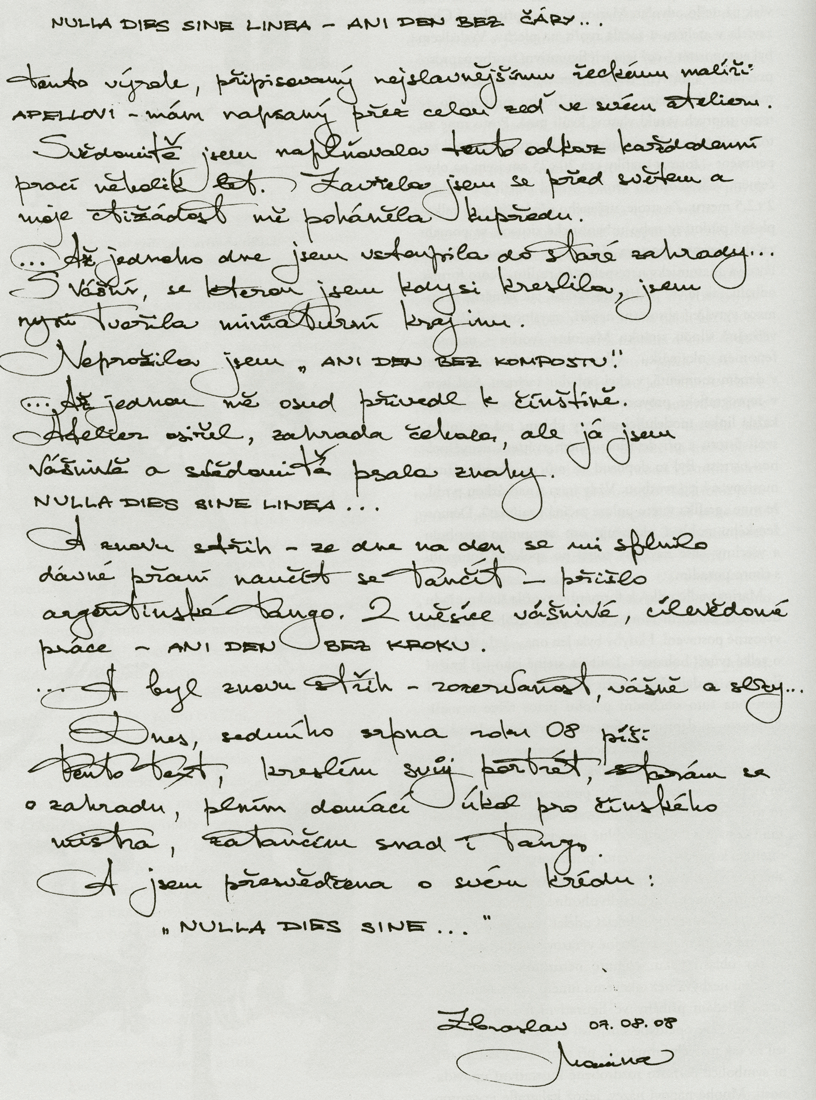 NULLA DIES SINE LINEA – ANI DEN BEZ ČÁRY...
tento výrok, připisovaný nejslavnějšímu řeckému malíři
APELLOVI – mám napsaný přes celou zeď ve svém atelieru.
Svědomitě jsem naplňovala tento odkaz každodenní
prací několik let. Zavřela jsem se před světem a
moje ctižádost mě poháněla kupředu.
... Až jednoho dne jsem vstoupila do staré zahrady...
S vášní, se kterou jsem kdysi kreslila, jsem
nyní tvořila miniaturní krajinu.
Neprožila jsem „ANI DEN BEZ KOMPOSTU".
... Až jednou mě osud přivedl k čínštině.
Atelier osiřel, zahrada čekala, ale já jsem
vášnivě a svědomitě psala znaky.
NULLA DIES SINE LINEA...
A znovu střih – ze dne na den se mi splnilo
dávné přání naučit se tančit – přišlo
argentinské tango. 2 měsíce vášnivé, cílevědomé
práce – ANI DEN BEZ KROKU.
... A byl znovu střih – rozervanost, vášně a slzy...
Dnes, sedmího srpna roku 08 píši
tento text, kreslím svůj portrét, starám se
o zahradu, plním domácí úkol pro čínského
mistra, zatančím snad i tango.
A jsem přesvědčena o svém krédu:
„NULLA DIES SINE..."
Zbraslav 07.08.08